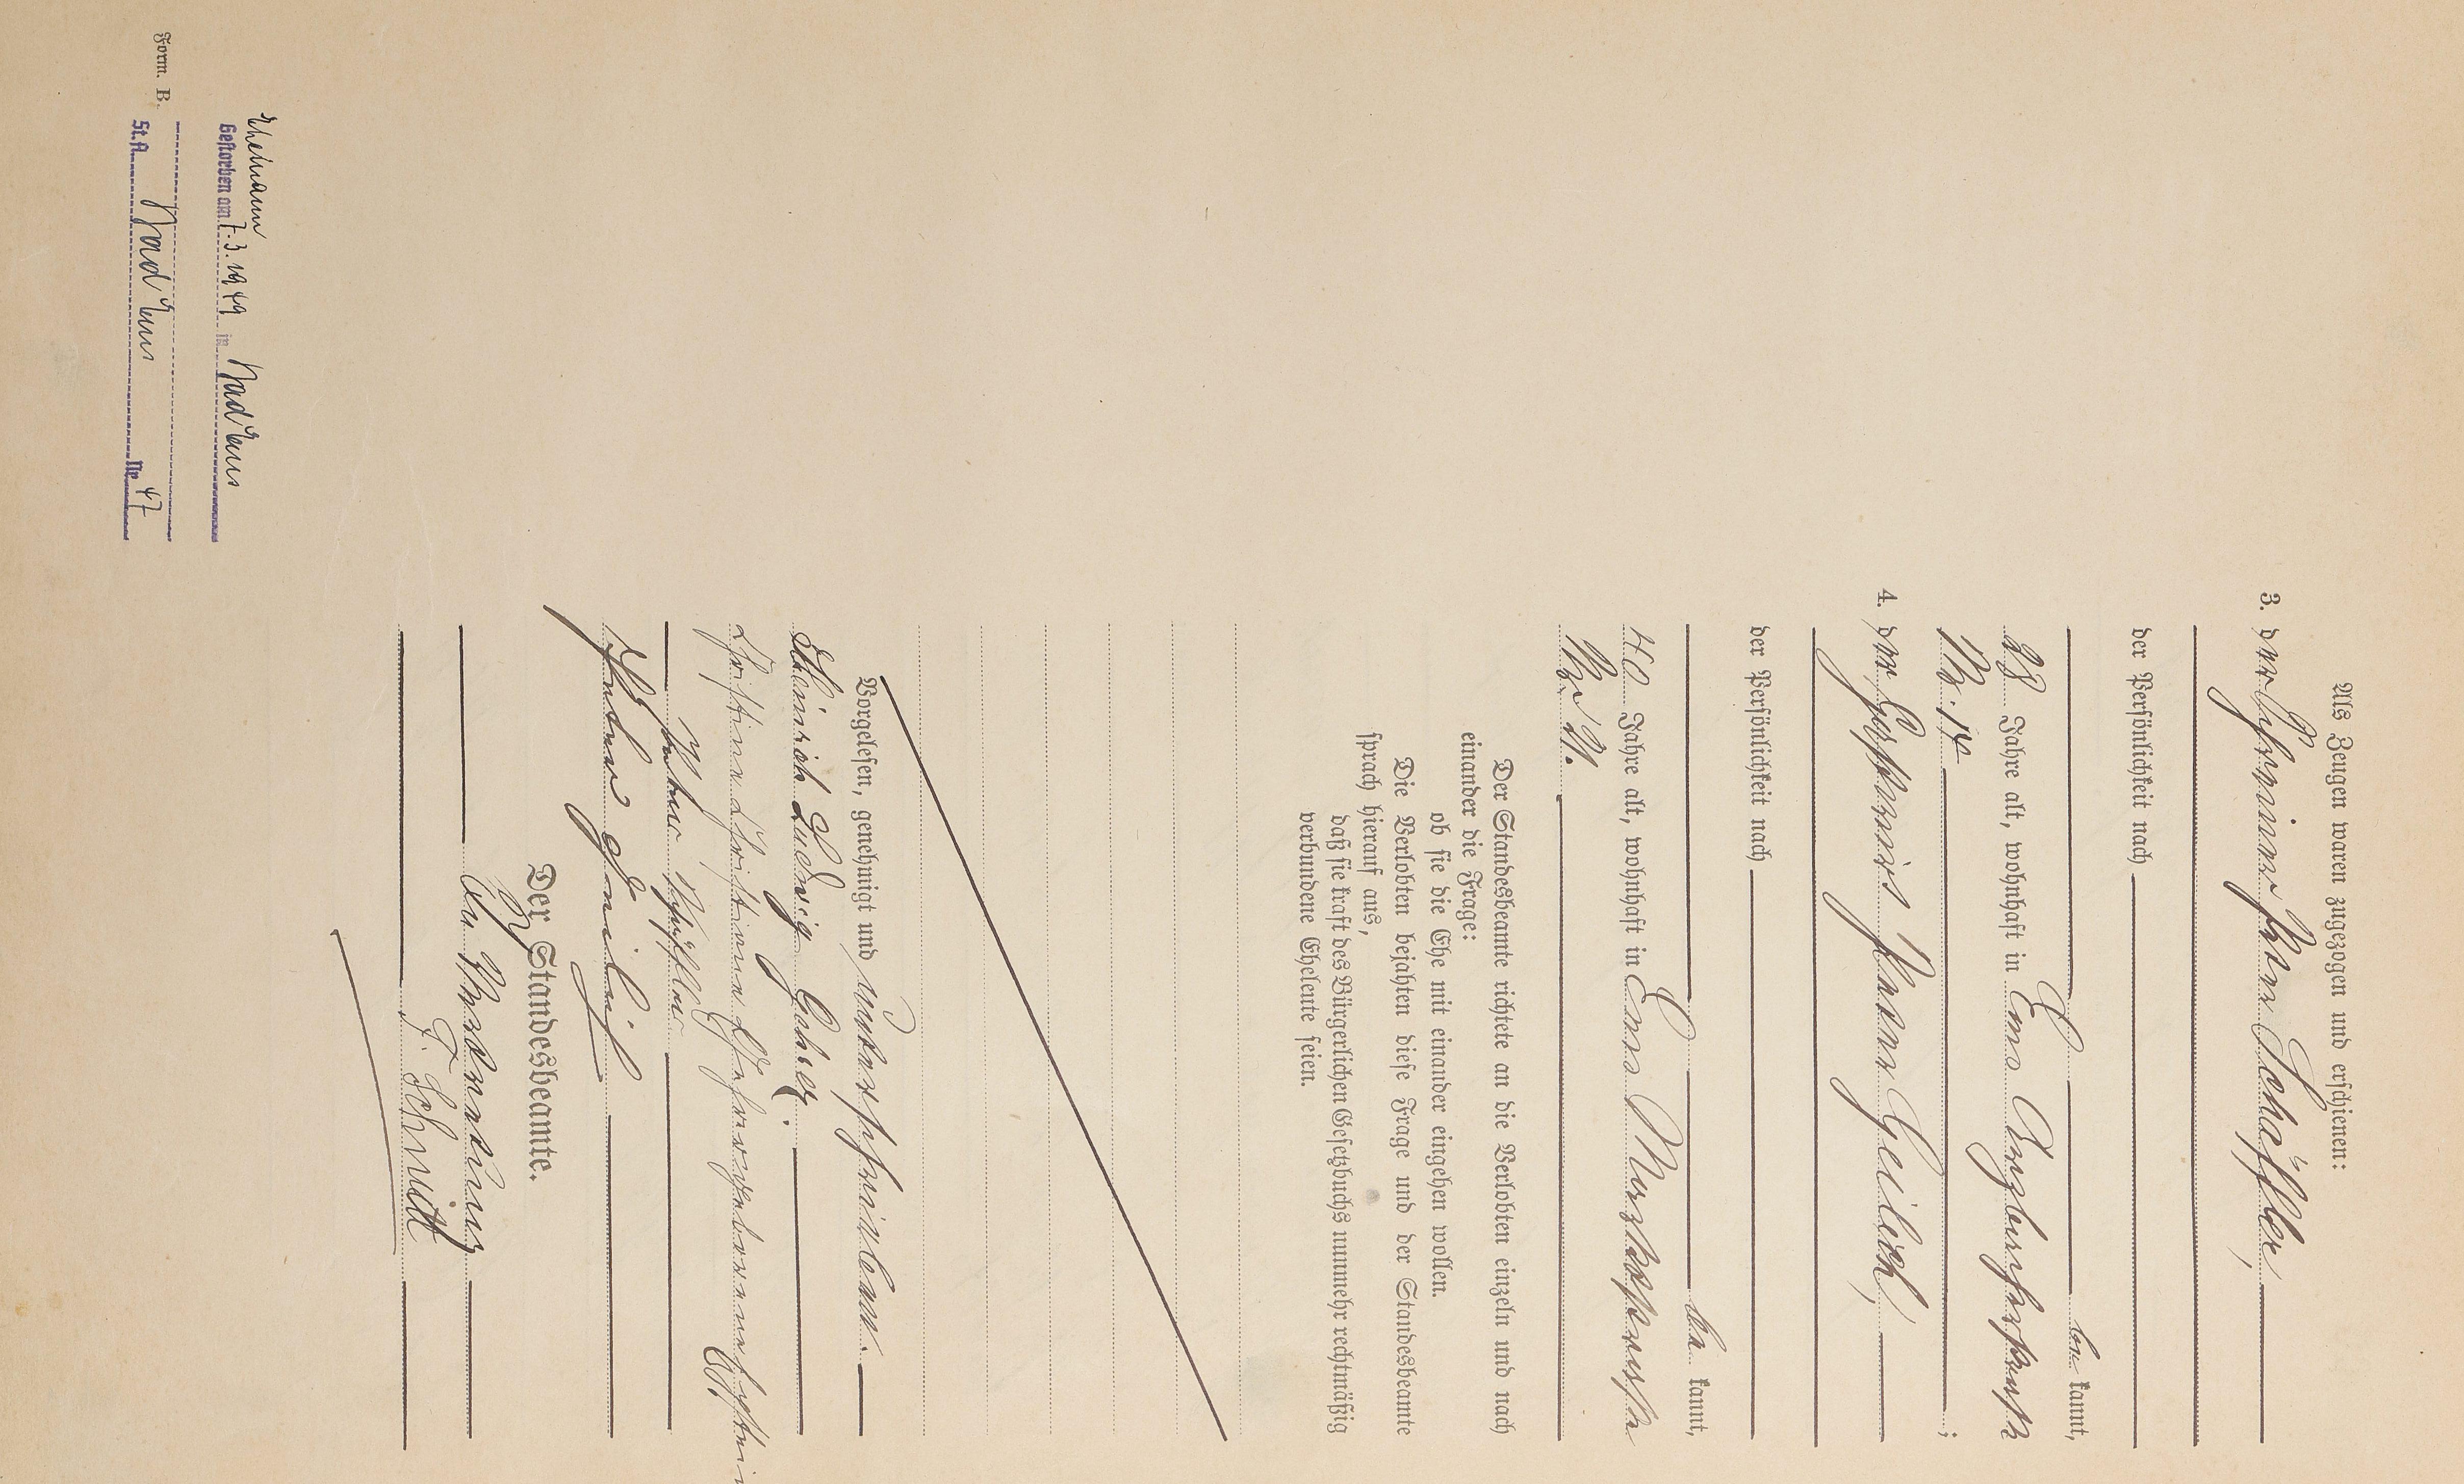 Als Zeugen waren zugezogen und erschienen:
3. der Schreiner Peter Schäffler,
der Persönlichkeit nach
be kannt,
28 Jahre alt, wohnhaft in Ems
Nr. 14 ;
4. der Johann Geilich,
der Persönlichkeit nach
be kannt,
40 Jahre alt, wohnhaft in Ems
Der Standesbeamte richtete an die Verlobten einzeln und nach
einander die Frage:
ob sie die Ehe mit einander eingehen wollen.
Die Verlobten bejahten diese Frage und der Standesbeamte
sprach hierauf aus,
daß sie kraft des Bürgerlichen Gesetzbuchs nunmehr rechtmäßig
verbundene Eheleute seien.
Vorgelesen, genehmigt und unterschrieben.
Heinrich Ludwig
Christine Christiane
Peter Schäffler
Der Standesbeamte.
In Vertretung
F. Schmitt
Ehemann
Gestorben am 7.3.1949 in Bad Ems
St.A. Bad Ems Nr. 47
Form. B.